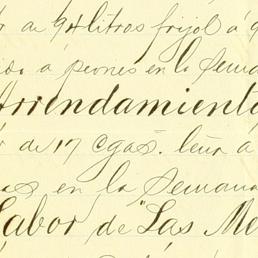 de 94 litros frijol á 9
ido a peones en la Sema
Arrendamiento
de 17 Cgas. leña a
as en la Semana
Labor de "Las Me